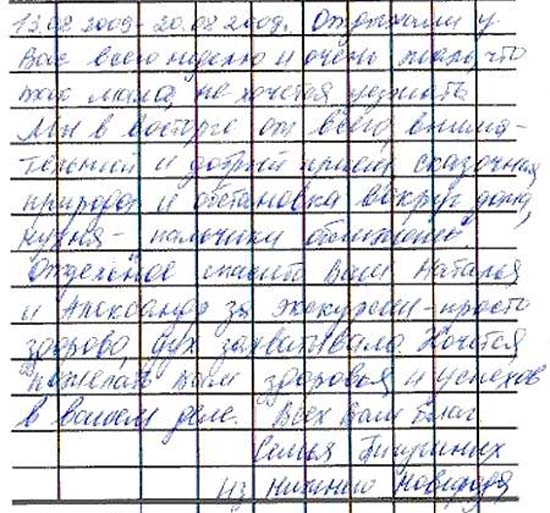 13.08.2009 - 20.08.2009. Отдыхали у
Вас всего неделю и очень жаль, что
так мало, не хочется уезжать
Мы в восторге от всего, внима-
тельный и добрый прием, сказочная
природа и обстановка вокруг дома,
кухня - пальчики оближешь.
Отдельное спасибо Вам Наталья
и Александр за экскурсии - просто
здорово, дух захватывало. Хочется
пожелать вам здоровья и успехов
в вашем деле. Всех Вам благ
Семья
Из Нижнего Новгорода